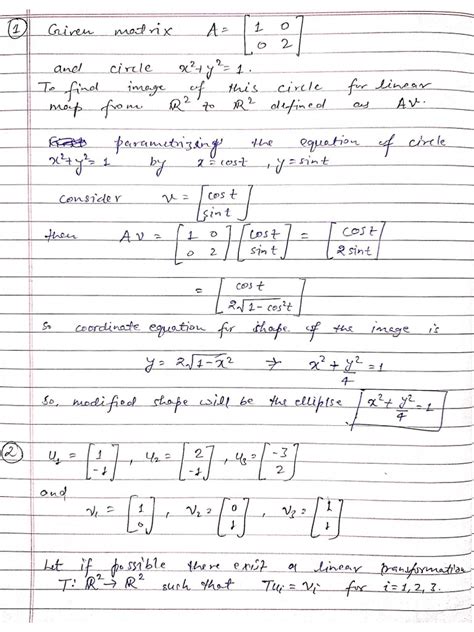 ① Given matrix A = [1 0; 0 2]
and circle x²+y²=1.
To find image of this circle for linear
map from ℝ² to ℝ² defined as Av.
parametrizing the equation of circle
x²+y²=1 by x=cost, y=sint
consider v = [cost; sint]
then Av = [1 0; 0 2] [cost; sint] = [cost; 2sint]
= [cost; 2√1-cos²t]
so coordinate equation for shape of the image is
y = 2√1-x² → x² + y²/4 = 1
So, modified shape will be the elliplse x² + y²/4 = 1
② u₁ = [1; -1], u₂ = [2; -1], u₃ = [-3; 2]
and
v₁ = [1; 0], v₂ = [0; 1], v₃ = [1; 1]
Let if possible there exist a linear transformation
T: ℝ² → ℝ² such that Tuᵢ = vᵢ for i=1,2,3.